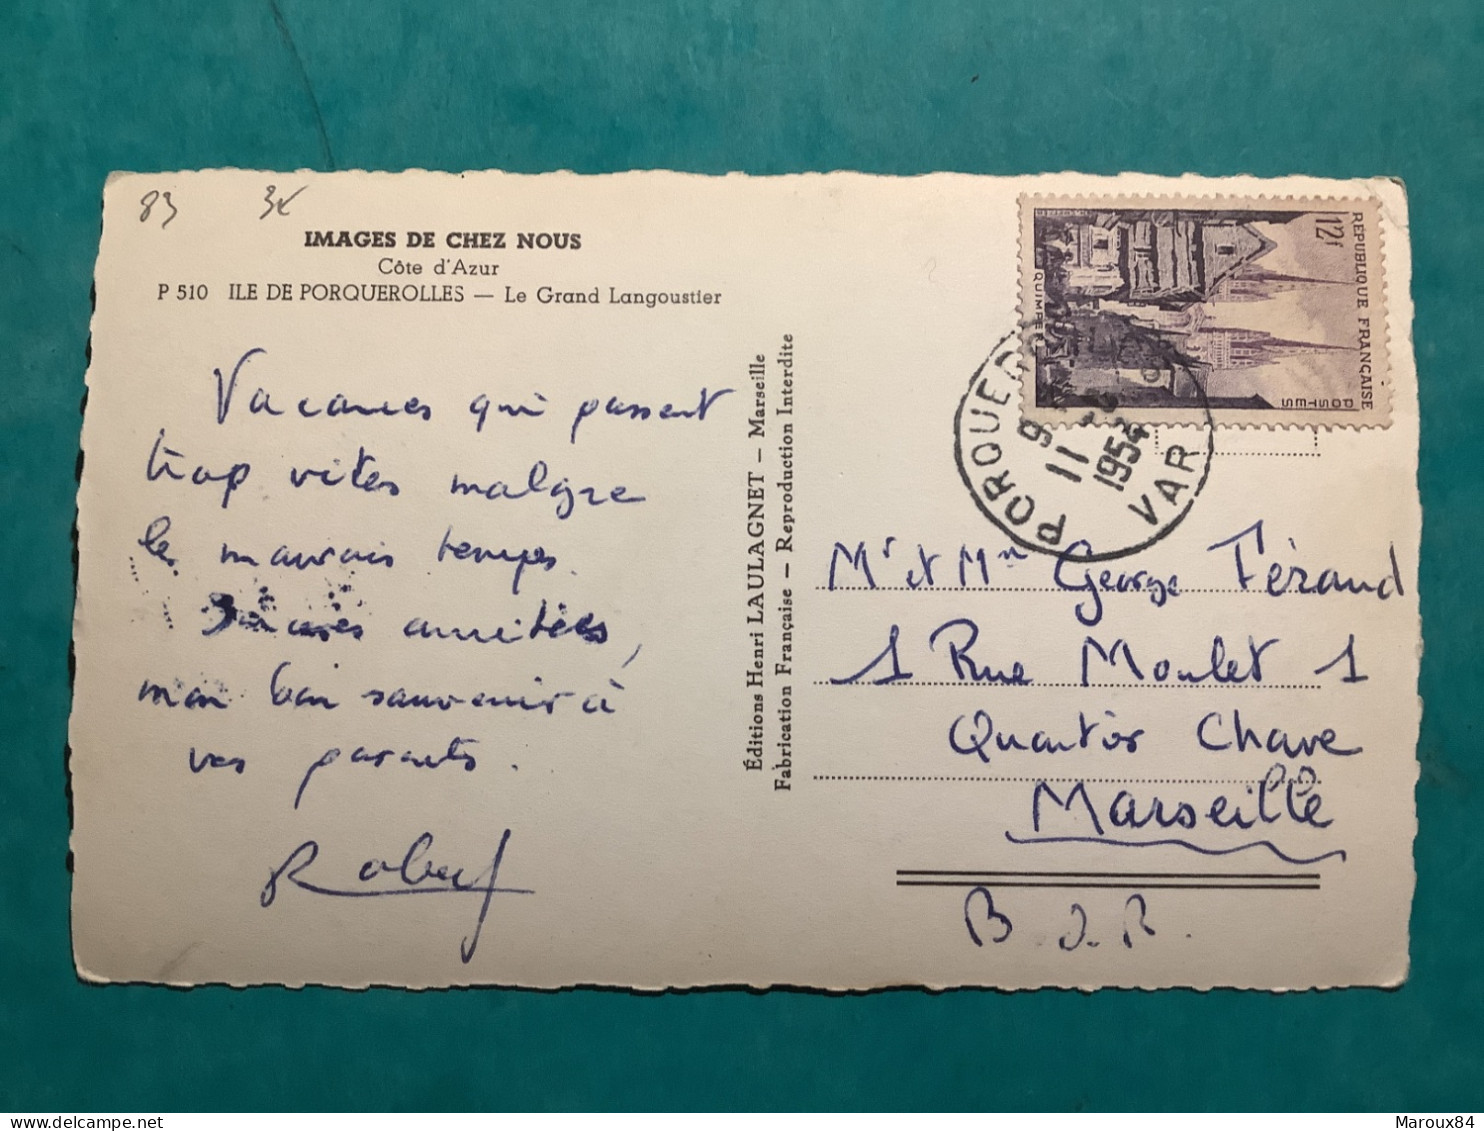 83 3€
IMAGES DE CHEZ NOUS
Côte d'Azur
P 510 ILE DE PORQUEROLLES — Le Grand Langoustier
Vacances qui passent
trop vites malgre
le mauvais temps.
amitiées,
mon bon souvenir à
vos parents.
Robert
Éditions Henri LAULAGNET — Marseille
Fabrication Française — Reproduction Interdite
REPUBLIQUE FRANÇAISE
12f
POSTES
QUIMPER
PORQUEROLLES
11
1954
VAR
Mr et Mme George Féraud
1 Rue Moulet 1
Quartier Chave
Marseille
B. d. R.
Maroux84